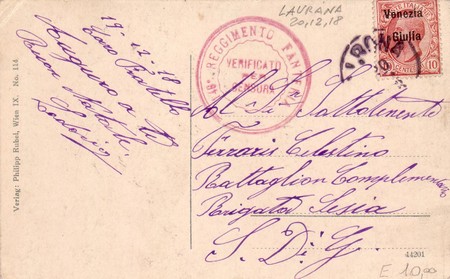 LAURANA
20,12,18
Venezia
Giulia
10 CENTESIMI 10
REGGIMENTO FANTERIA
VERIFICATO
PER
CENSURA
19-12-18
Caro Fratello
Auguro a te
Buon Natale
Lodovico
Al Sottotenente
Ferraris Celestino
Battaglion Complementare
Brigata Sesia
S. Di G.
Verlag: Philipp Rubel, Wien IX. No. 114
44201
E 10,00